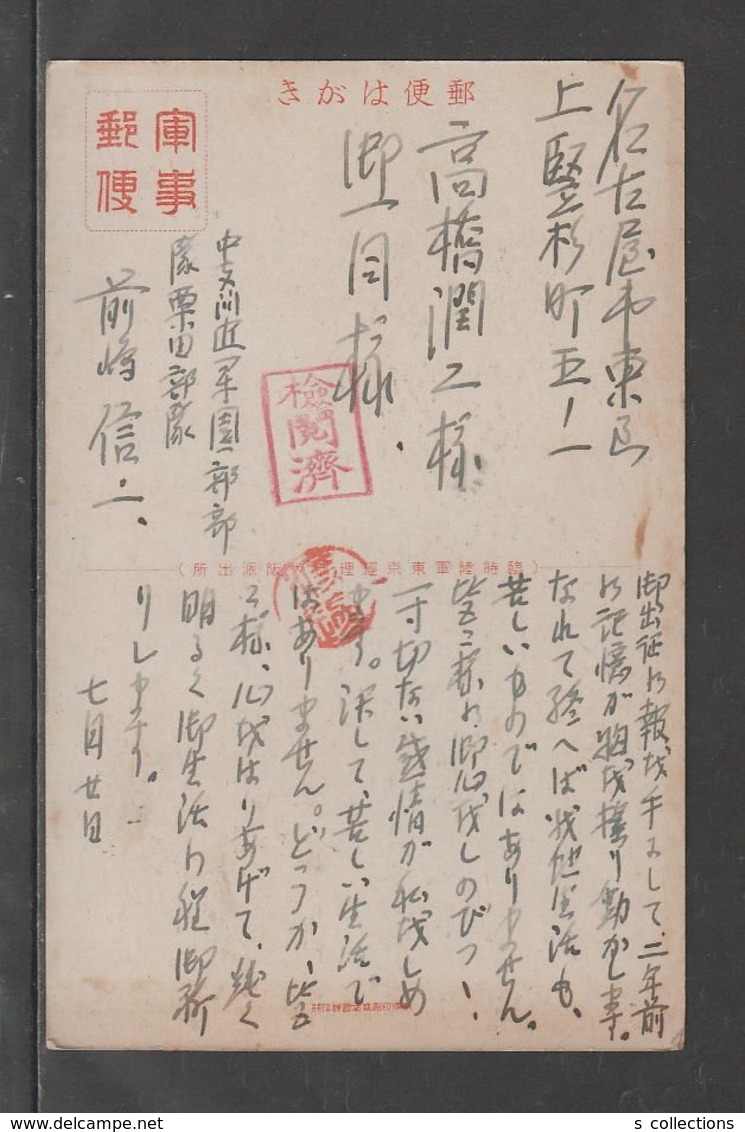 郵便はがき
軍事郵便
名古屋市東区
上竪杉町五ノ一
高橋潤二様
御一同様
検閲濟
中支派遣軍園部部
隊栗田部隊
前嶋信二
臨時陸軍東京經理 大阪派出所
御出征の報を手にして、二年前
の記憶が胸を揺り動かします。
なれて終へば戦地生活も、
苦しいものではありません。
皆々様の御心をしのびつゝ、
一寸切ない感情が私をしめ
ます。決して、苦しい生活で
はありません。どうか、皆
々様、心をはりあげて、強く
明るく御生活の程御祈
りします。
七月廿日
s collections